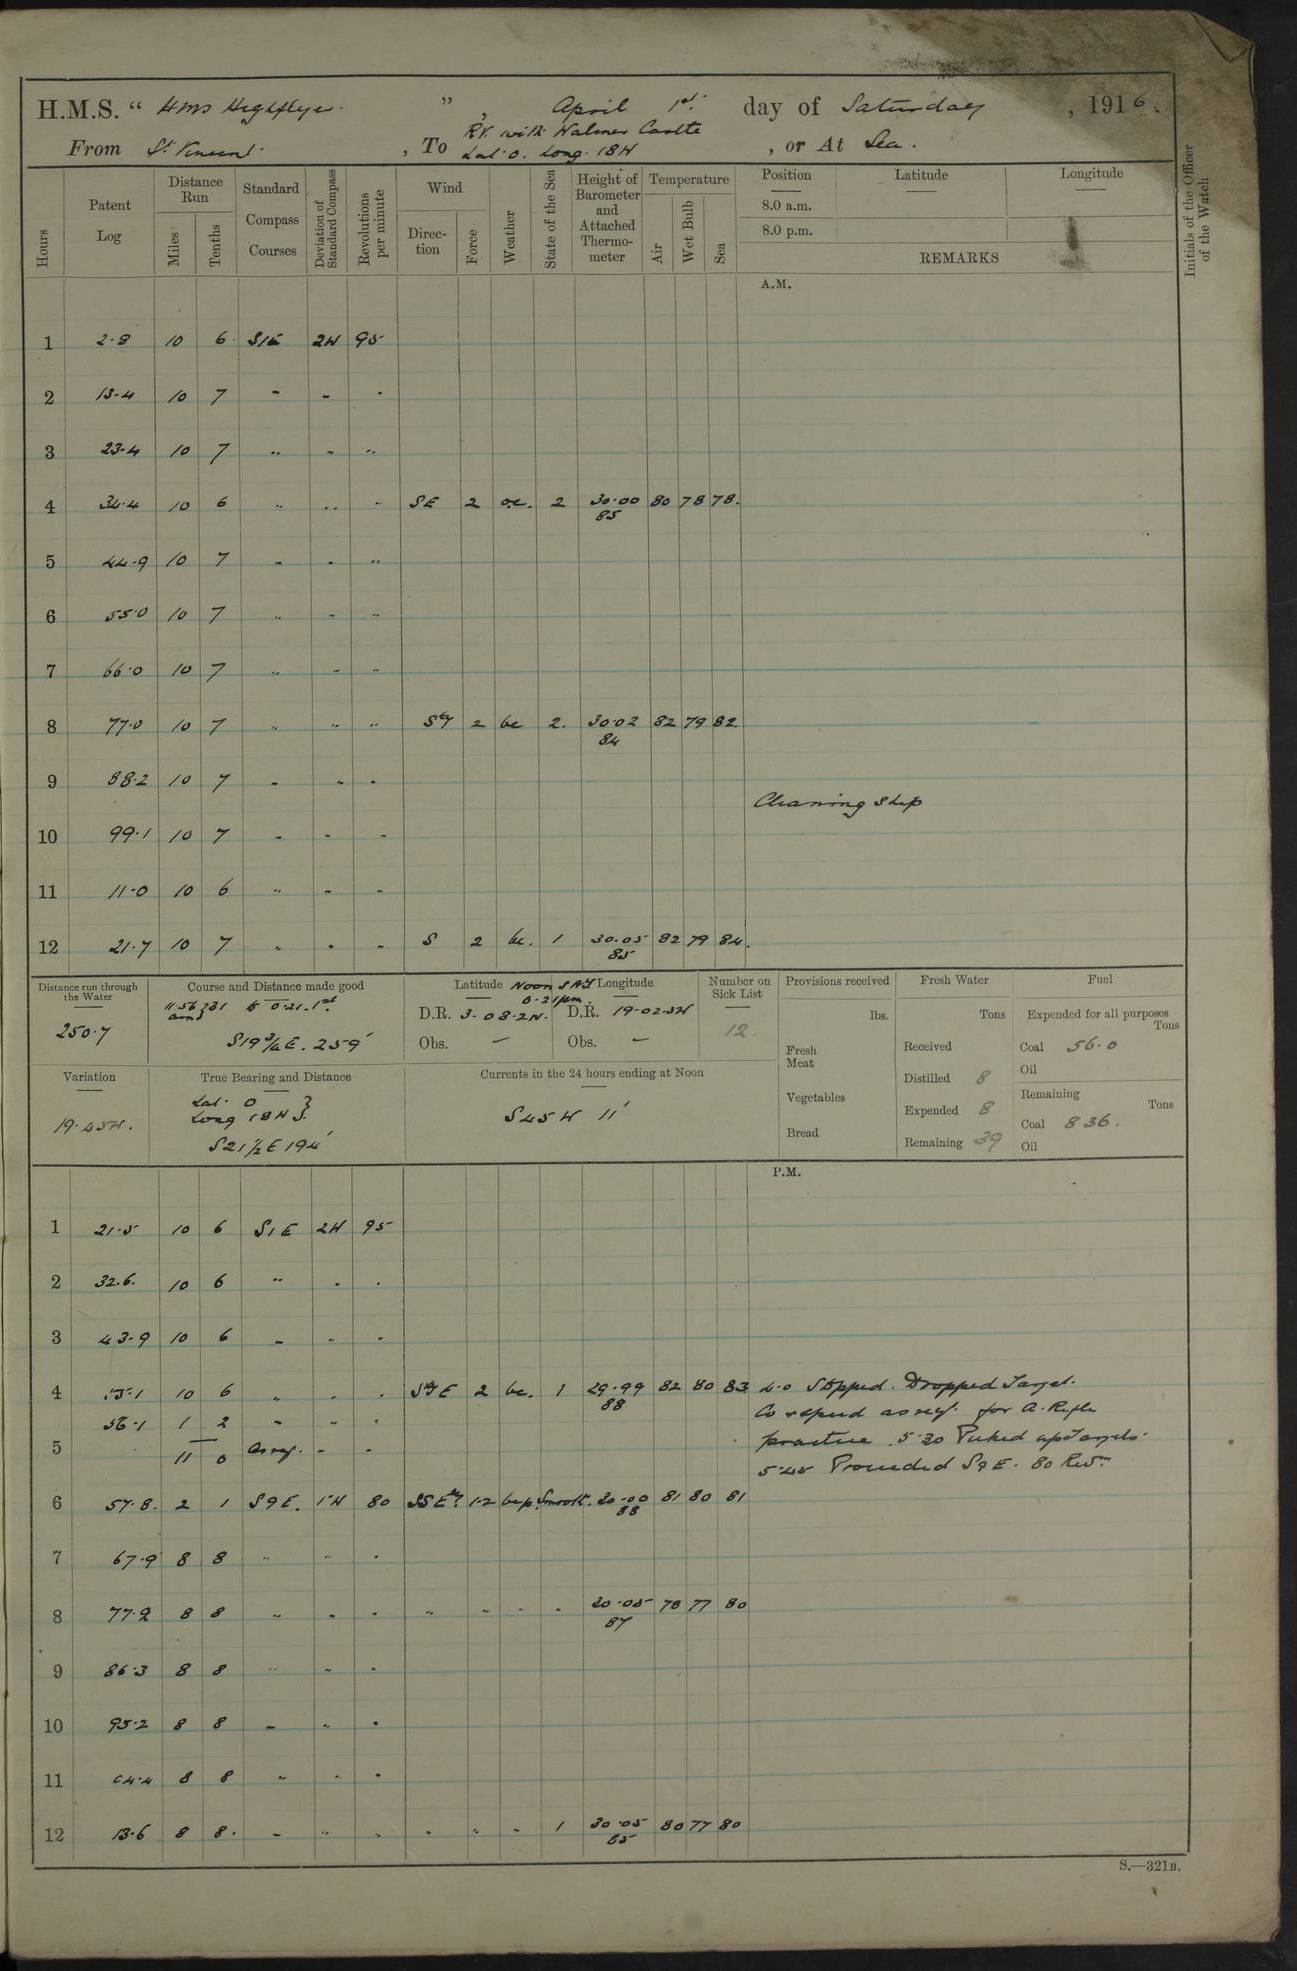 H.M.S. " HMS Highflyer. ", April 1st. day of Saturday, 1916.
From St Vincent. , To RV. with Walmer Castle Lat. 0. Long. 18W , or At Sea.
Hours
Patent Log
Distance Run
Miles
Tenths
Standard Compass Courses
Deviation of Standard Compass
Revolutions per minute
Wind
Direction
Force
Weather
State of the Sea
Height of Barometer and Attached Thermometer
Temperature
Air
Wet Bulb
Sea
Position
8.0 a.m.
8.0 p.m.
Latitude
Longitude
REMARKS
Initials of the Officer of the Watch
A.M.
1 2.8 10 6 S1E 2W 95
2 13.4 10 7 " " "
3 23.4 10 7 " " "
4 34.4 10 6 " " " SE 2 oc. 2 30.00 80 78 78.
85
5 44.9 10 7 " " "
6 55.0 10 7 " " "
7 66.0 10 7 " " "
8 77.0 10 7 " " " Sly 2 bc 2. 30.02 82 79 82
84
9 88.2 10 7 " " "
Cleaning Ship
10 99.1 10 7 " " "
11 11.0 10 6 " " "
12 21.7 10 7 " " " S 2 bc. 1 30.05 82 79 84.
85
Distance run through the Water
250.7
Course and Distance made good
11.56 am 31 to 0.21. 1st
S19¾E. 259'
Latitude Noon Longitude
0.21pm.
D.R. 3-08.2N. D.R. 19-02.5W
Obs. — Obs. —
Number on Sick List
12
Provisions received
lbs.
Fresh Meat
Vegetables
Bread
Fresh Water
Tons
Received
Distilled 8
Expended 8
Remaining 39
Fuel
Expended for all purposes
Tons
Coal 56.0
Oil
Remaining
Tons
Coal 836.
Oil
Variation
19.45W.
True Bearing and Distance
Lat. 0
Long 18W
S21½E 194'
Currents in the 24 hours ending at Noon
S45W 11'
P.M.
1 21.5 10 6 S1E 2W 95
2 32.6. 10 6 " " "
3 43.9 10 6 " " "
4 55.1 10 6 " " " SlyE 2 bc. 1 29.99 82 80 83 4.0 Stopped. Dropped Target.
88
56.1 1 2 " " " Co & speed as req. for A. Rifle
5 11 0 as req. " " practice. 5.30 Picked up Targets.
5.45 Proceeded S9E. 80 Revs.
6 57.8. 2 1 S9E. 1W 80 SSEly 1-2 bcp. Smooth. 30.00 81 80 81
88
7 67.9 8 8 " " "
8 77.2 8 8 " " " " " " " 30.05 78 77 80
87
9 86.3 8 8 " " "
10 95.2 8 8 " " "
11 04.4 8 8 " " "
12 13.6 8 8. " " " " " " 1 30.05 80 77 80
85
S.—321B.